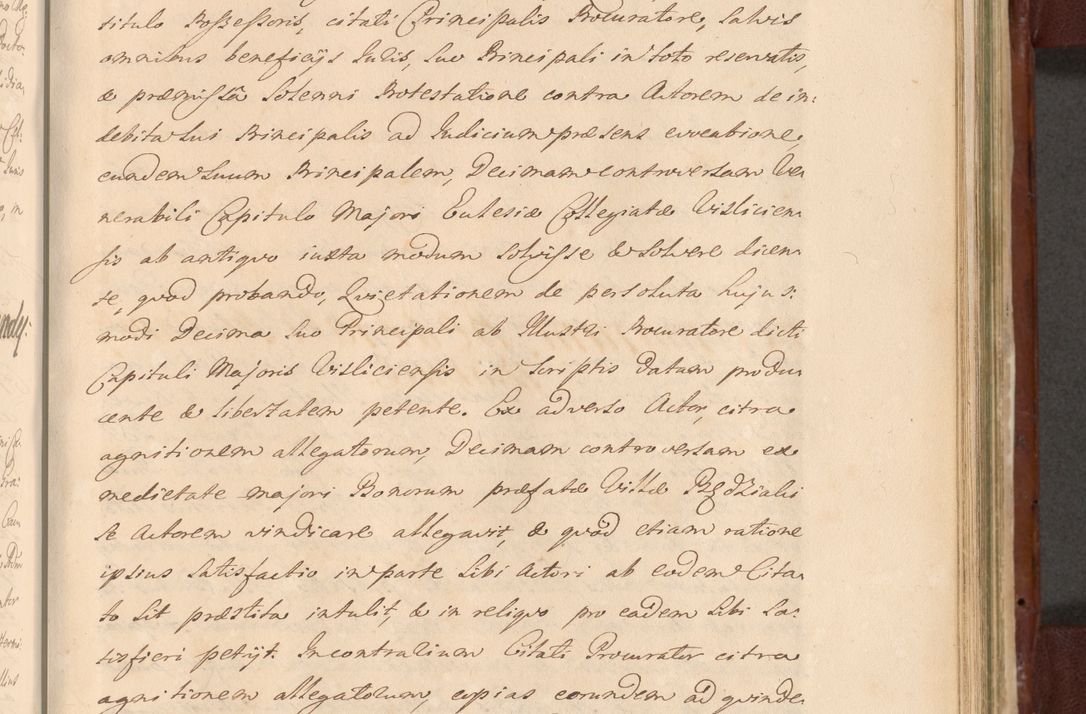 titulo Possessoris, citati Principalis Procuratore, Salvis
omnibus beneficijs Iuris, suo Principali in toto reservatis,
& præmissa Solenni Protestatione contra Actorem de in:
debita sui Principalis ad Iudicium præsens evocatione,
eundem suum Principalem, Decimam controversam Ve
nerabili Capitulo Majori Ecclesiæ Collegiatæ Vislicien
sis ab antiqvo iuxta modum solvisse & solvere dicen
te, qvod probando, Qvietationem de persoluta hujus:
modi Decima suo Principali ab Illustri Procuratore dicti
Capituli Majoris Visliciensis in Scriptis datam produ
cente & libertatem petente. Ex adverso Actor, citra
agnitionem allegatorum, Decimam controversam ex
medietate majori Bonorum præfatæ Villæ Będziaki
se Actorem vindicare allegavit, & qvod etiam ratione
ipsius Satisfactio in parte Sibi Actori ab eodem Cita
to Sit præstita intulit, & in reliqvo pro eadem Sibi Sa:
tisfieri petijt. In contrarium Citati Procurator citra
agnitionem allegatorum, copias eorundem ad qvinde